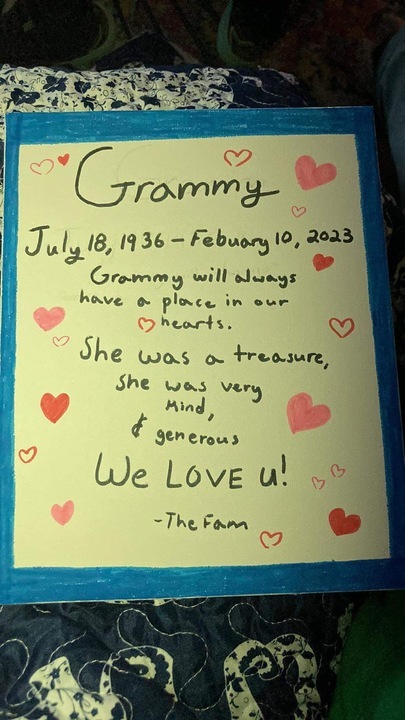 Grammy
July 18, 1936 – Febuary 10, 2023
Grammy will always
have a place in our
hearts.
She was a treasure,
She was very
kind,
& generous
We LOVE u!
-The Fam